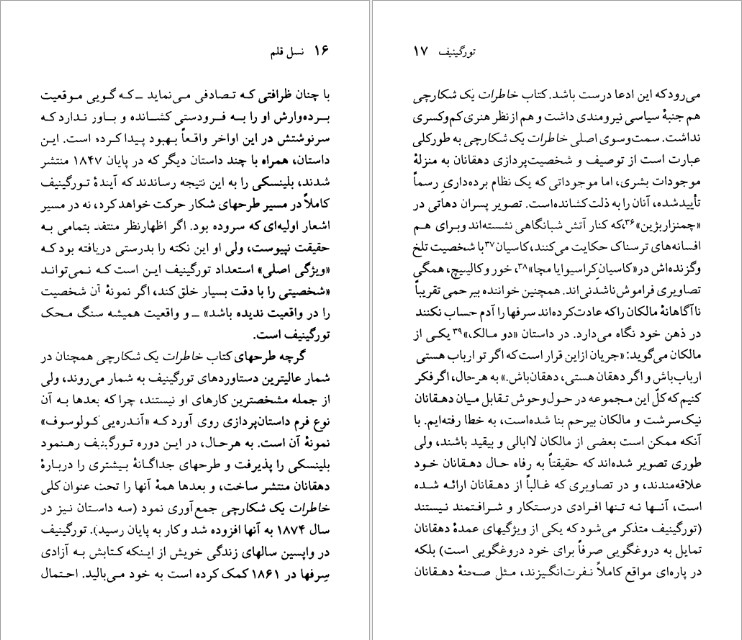 ۱۶ نسل قلم
با چنان ظرافتی که تصادفی می‌نماید ــ که گویی موقعیت
برده‌وارش او را به فرودستی کشانده و باور ندارد که
سرنوشتش در این اواخر واقعاً بهبود پیدا کرده است. این
داستان، همراه با چند داستان دیگر که در پایان ۱۸۴۷ منتشر
شدند، بلینسکی را به این نتیجه رساندند که آیندهٔ تورگینیف
کاملاً در مسیر طرحهای شکار حرکت خواهد کرد، نه در مسیر
اشعار اولیه‌ای که سروده بود. اگر اظهارنظر منتقد بتمامی به
حقیقت نپیوست، ولی او این نکته را بدرستی دریافته بود که
«ویژگی اصلی» استعداد تورگینیف این است که نمی‌تواند
«شخصیتی را با دقت بسیار خلق کند، اگر نمونهٔ آن شخصیت
را در واقعیت ندیده باشد» ــ و واقعیت همیشه سنگ محک
تورگینیف است.
گرچه طرحهای کتاب خاطرات یک شکارچی همچنان در
شمار عالیترین دستاوردهای تورگینیف به شمار می‌روند، ولی
از جمله مشخصترین کارهای او نیستند، چرا که بعدها به آن
نوع فرم داستان‌پردازی روی آورد که «آندره‌یی کولوسوف»
نمونهٔ آن است. به هرحال، در این دوره تورگینیف رهنمود
بلینسکی را پذیرفت و طرحهای جداگانهٔ بیشتری را دربارهٔ
دهقانان منتشر ساخت، و بعدها همهٔ آنها را تحت عنوان کلی
خاطرات یک شکارچی جمع‌آوری نمود (سه داستان نیز در
سال ۱۸۷۴ به آنها افزوده شد و کار به پایان رسید). تورگینیف
در واپسین سالهای زندگی خویش از اینکه کتابش به آزادی
سِرفها در ۱۸۶۱ کمک کرده است به خود می‌بالید. احتمال
تورگینیف ۱۷
می‌رود که این ادعا درست باشد. کتاب خاطرات یک شکارچی
هم جنبهٔ سیاسی نیرومندی داشت و هم از نظر هنری کم‌وکسری
نداشت. سمت‌وسوی اصلی خاطرات یک شکارچی به طورکلی
عبارت است از توصیف و شخصیت‌پردازی دهقانان به منزلهٔ
موجودات بشری، اما موجوداتی که یک نظام برده‌داریِ رسماً
تأییدشده، آنان را به ذلت کشانده است. تصویر پسران دهاتی در
«چمنزار بژین»۳۶ که کنار آتش شبانگاهی نشسته‌اند و برای هم
افسانه‌های ترسناک حکایت می‌کنند، کاسیان۳۷ با شخصیت تلخ
وگزنده‌اش در «کاسیانِ کراسیوایا مچا»۳۸، خور و کالینیچ، همگی
تصاویری فراموش‌ناشدنی‌اند. همچنین خواننده بیرحمی تقریباً
ناآگاهانهٔ مالکان را که عادت کرده‌اند سرفها را آدم حساب نکنند
در ذهن خود نگاه می‌دارد. در داستان «دو مالک»۳۹ یکی از
مالکان می‌گوید: «جریان از این قرار است که اگر تو ارباب هستی
ارباب باش و اگر دهقان هستی، دهقان باش.» به هرحال، اگر فکر
کنیم که کلّ این مجموعه در حول‌وحوش تقابل میان دهقانان
نیک‌سرشت و مالکان بیرحم بنا شده‌است، به خطا رفته‌ایم. با
آنکه ممکن است بعضی از مالکان لاابالی و بیقید باشند، ولی
طوری تصویر شده‌اند که حقیقتاً به رفاه حال دهقانان خود
علاقه‌مندند، و در تصاویری که غالباً از دهقانان ارائه شده
است، آنها نه تنها افرادی درستکار و شرافتمند نیستند
(تورگینیف متذکر می‌شود که یکی از ویژگیهای عمدهٔ دهقانان
تمایل به دروغگویی صرفاً برای خود دروغگویی است) بلکه
در پاره‌ای مواقع کاملاً نفرت‌انگیزند، مثل صحنهٔ دهقانان